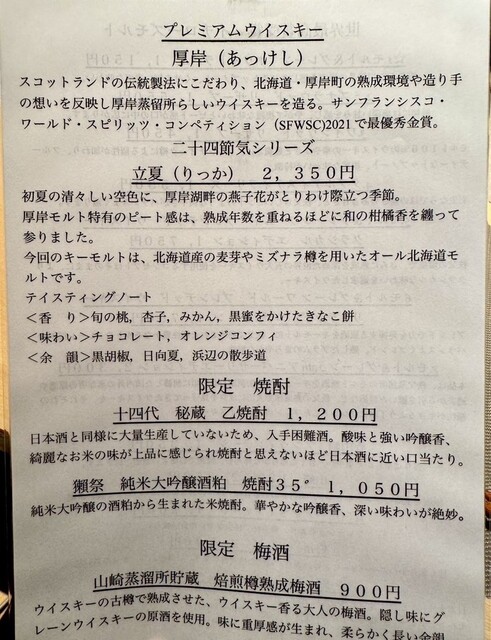 プレミアムウイスキー
厚岸（あっけし）
スコットランドの伝統製法にこだわり、北海道・厚岸町の熟成環境や造り手
の想いを反映し厚岸蒸留所らしいウイスキーを造る。サンフランシスコ・
ワールド・スピリッツ・コンペティション (SFWSC)2021で最優秀金賞。
二十四節気シリーズ
立夏（りっか）　２，３５０円
初夏の清々しい空色に、厚岸湖畔の燕子花がとりわけ際立つ季節。
厚岸モルト特有のピート感は、熟成年数を重ねるほどに和の柑橘香を纏って
参りました。
今回のキーモルトは、北海道産の麦芽やミズナラ樽を用いたオール北海道モ
ルトです。
テイスティングノート
＜香　り＞旬の桃，杏子，みかん，黒蜜をかけたきなこ餅
＜味わい＞チョコレート，オレンジコンフィ
＜余　韻＞黒胡椒，日向夏，浜辺の散歩道
限定　焼酎
十四代　秘蔵　乙焼酎　１，２００円
日本酒と同様に大量生産していないため、入手困難酒。酸味と強い吟醸香、
綺麗なお米の味が上品に感じられ焼酎と思えないほど日本酒に近い口当たり。
獺祭　純米大吟醸酒粕　焼酎３５°　１，０５０円
純米大吟醸の酒粕から生まれた米焼酎。華やかな吟醸香、深い味わいが絶妙。
限定　梅酒
山崎蒸溜所貯蔵　焙煎樽熟成梅酒　９００円
ウイスキーの古樽で熟成させた、ウイスキー香る大人の梅酒。隠し味にグ
レーンウイスキーの原酒を使用。味に重厚感が生まれ、柔らかく長い余韻